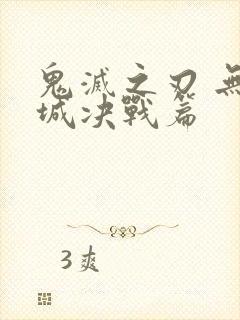 鬼滅之刃 無
城決戰篇
3爽